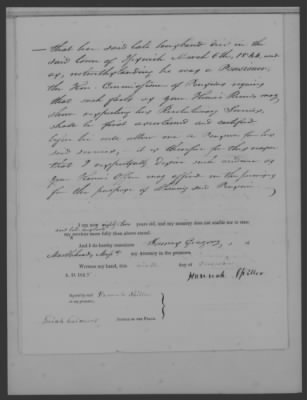 that her said late husband died in the
said town of Ipswich March 6th, 1844, and
as, notwithstanding he was a Pensioner,
the Hon. Commissioner of Pensions requires
that such facts as your Honor's Records may
show respecting his Revolutionary Services,
shall be first ascertained and certified
before he will allow me a Pension for his
said services, it is therefore for this reason
that I respectfully desire such evidence as
your Honor's Office may afford in the premises
for the purpose of obtaining said Pension.
I am now eighty two years old, and my memory does not enable me to state
my services more fully than above stated.
And I do hereby constitute Gregory, of
Marblehead, Mass. my Attorney in the premises.
Witness my hand, this day of
A. D. 184
Hannah Spiller
Signed by said Hannah Spiller
in my presence,
Justice of the Peace.